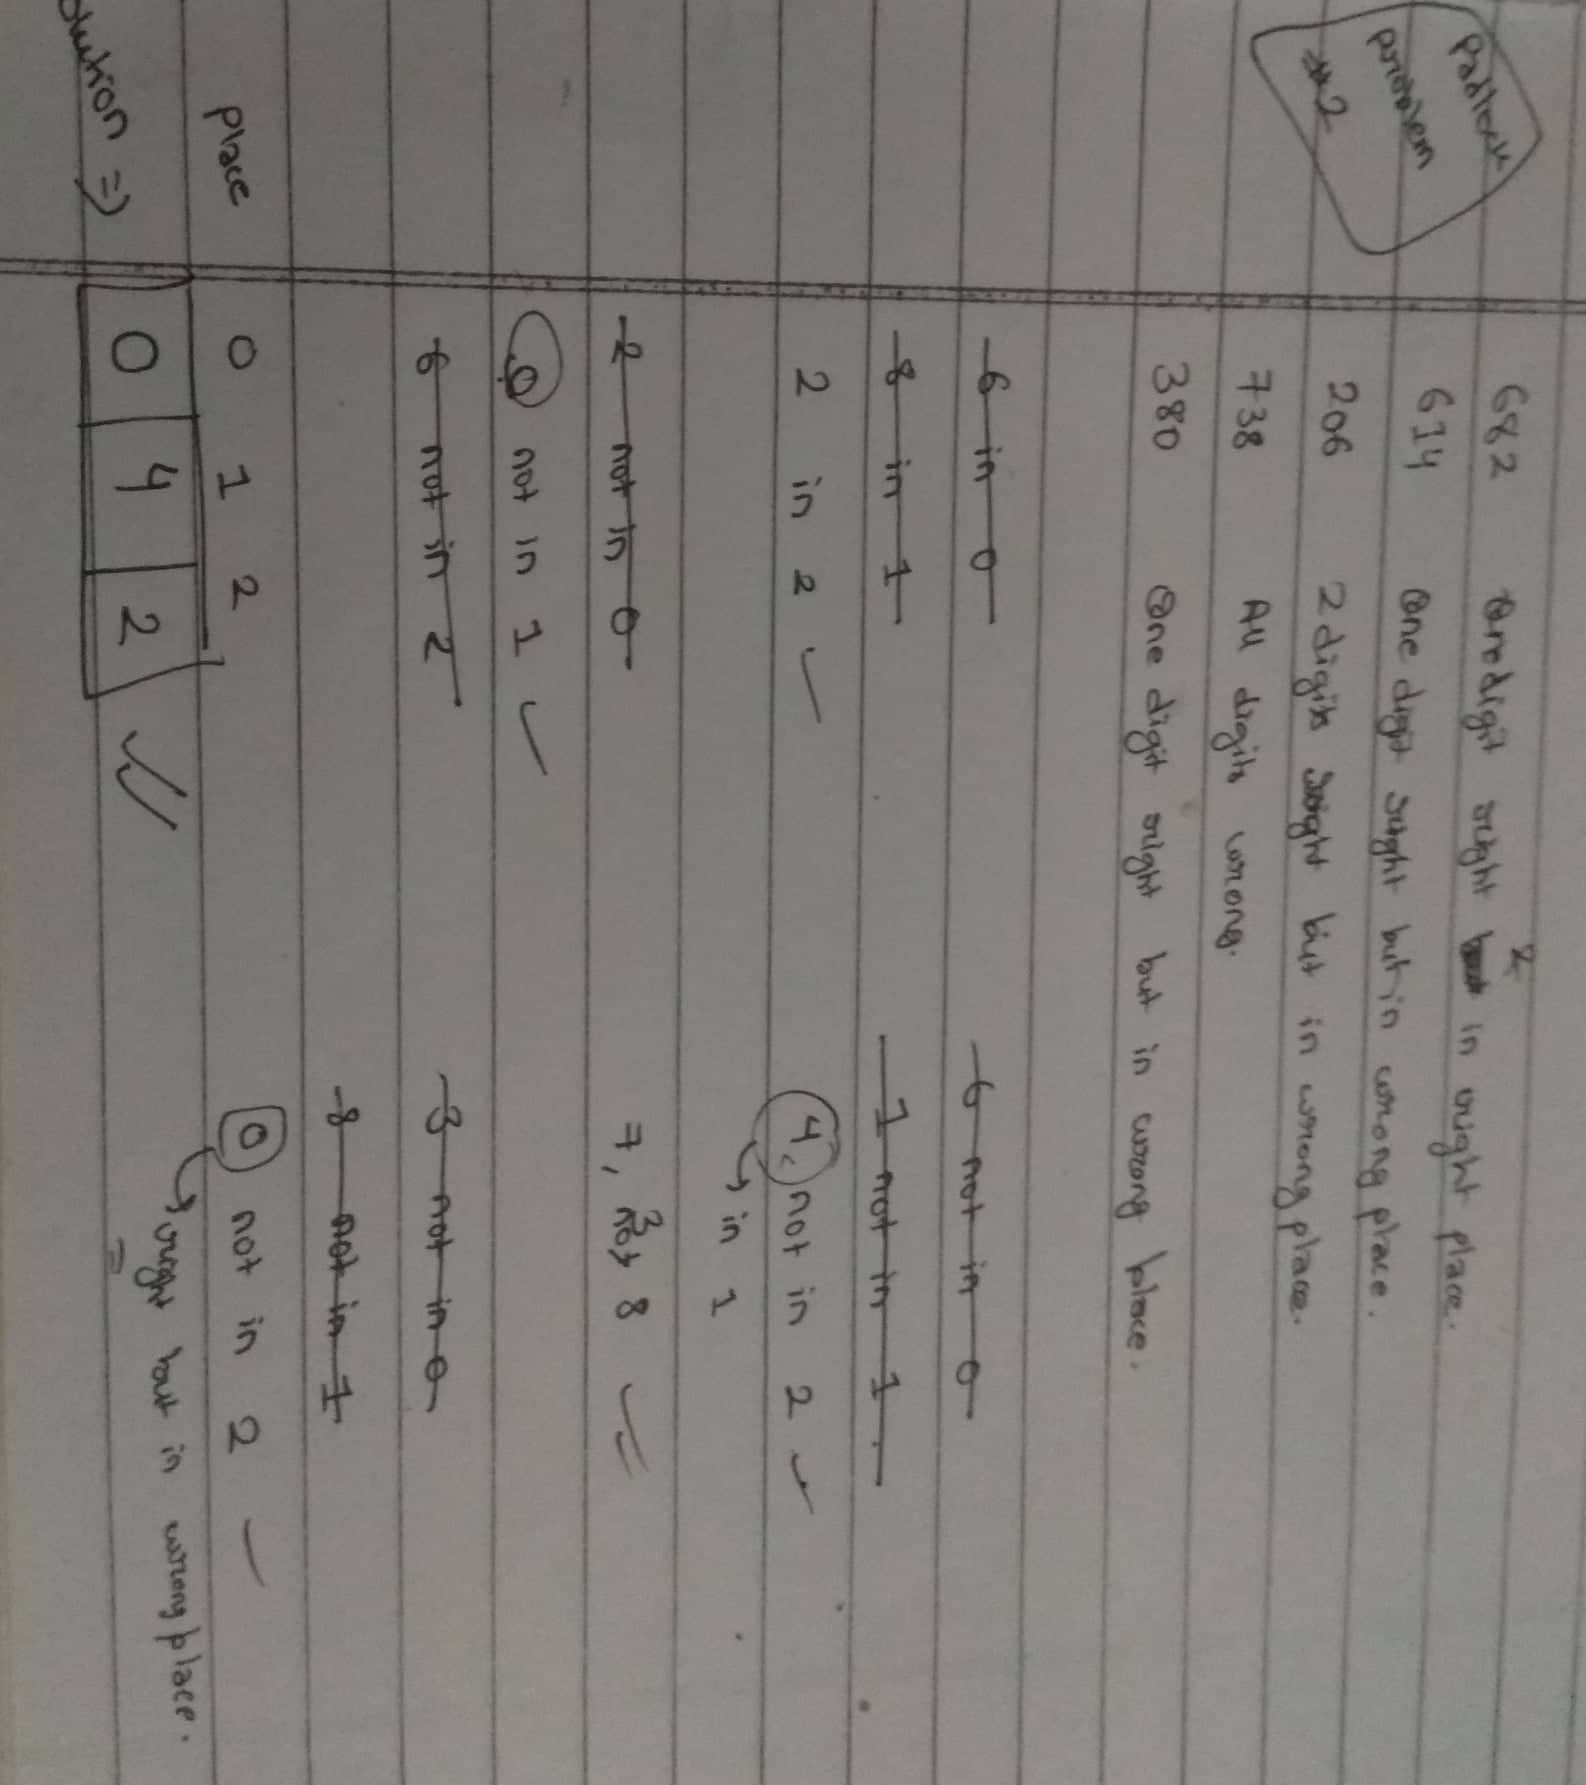 Padlock
problem
#2
682 One digit right & in right place.
614 One digit right but in wrong place.
206 2 digits right but in wrong place.
738 All digits wrong.
380 One digit right but in wrong place.
6 in 0
6 not in 0
8 in 1
1 not in 1
2 in 2 ✓
4 not in 2 ✓
↳ in 1
2 not in 0
7, 3, 8 ✓
0 not in 1 ✓
6 not in 2
3 not in 0
8 not in 1
0 not in 2
↳ right but in wrong place.
place 0 1 2
olution ⇒ 0 4 2 ✓✓